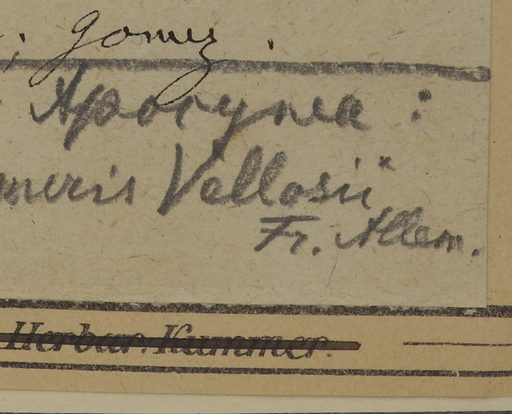 ; Gomez.
Apocynea:
neris Vellosii
Fr. Allem.
Herbar. Kummer.